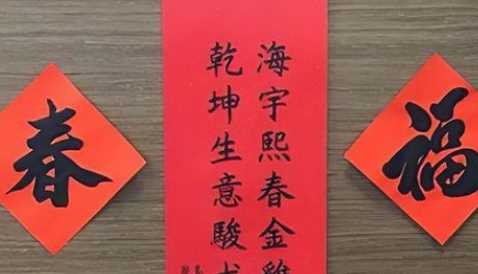 春
海宇熙春金雞
乾坤生意駿
福